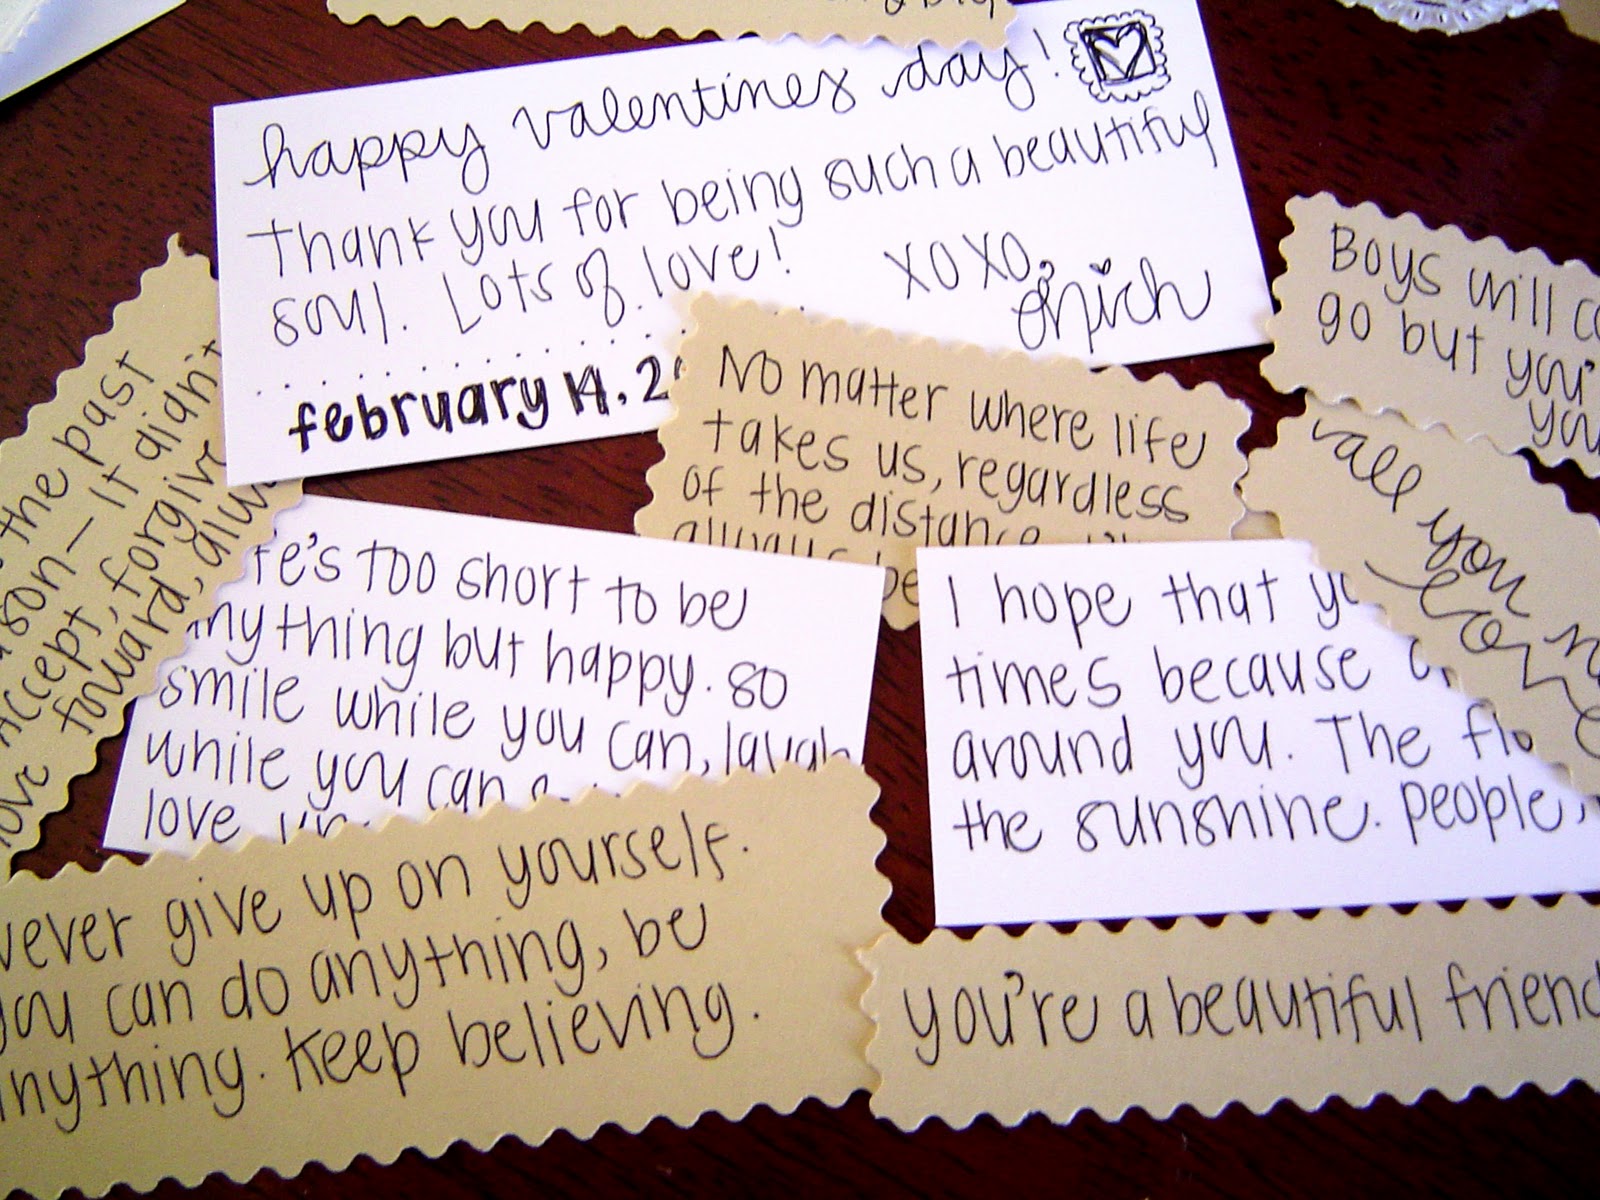 happy valentines day!
Thank you for being such a beautiful
soul. Lots of love!
xoxo,
february 14. 2
No matter where life
takes us, regardless
of the distance
always be
Boys will
go but you'
you
call you
the past
it didn't
Accept, forgive
forward,
love
too short to be
anything but happy. so
smile while you can, laugh
while you can
love
I hope that
times because
around you. The
the sunshine. People,
never give up on yourself.
you can do anything, be
anything. Keep believing.
you're a beautiful friend